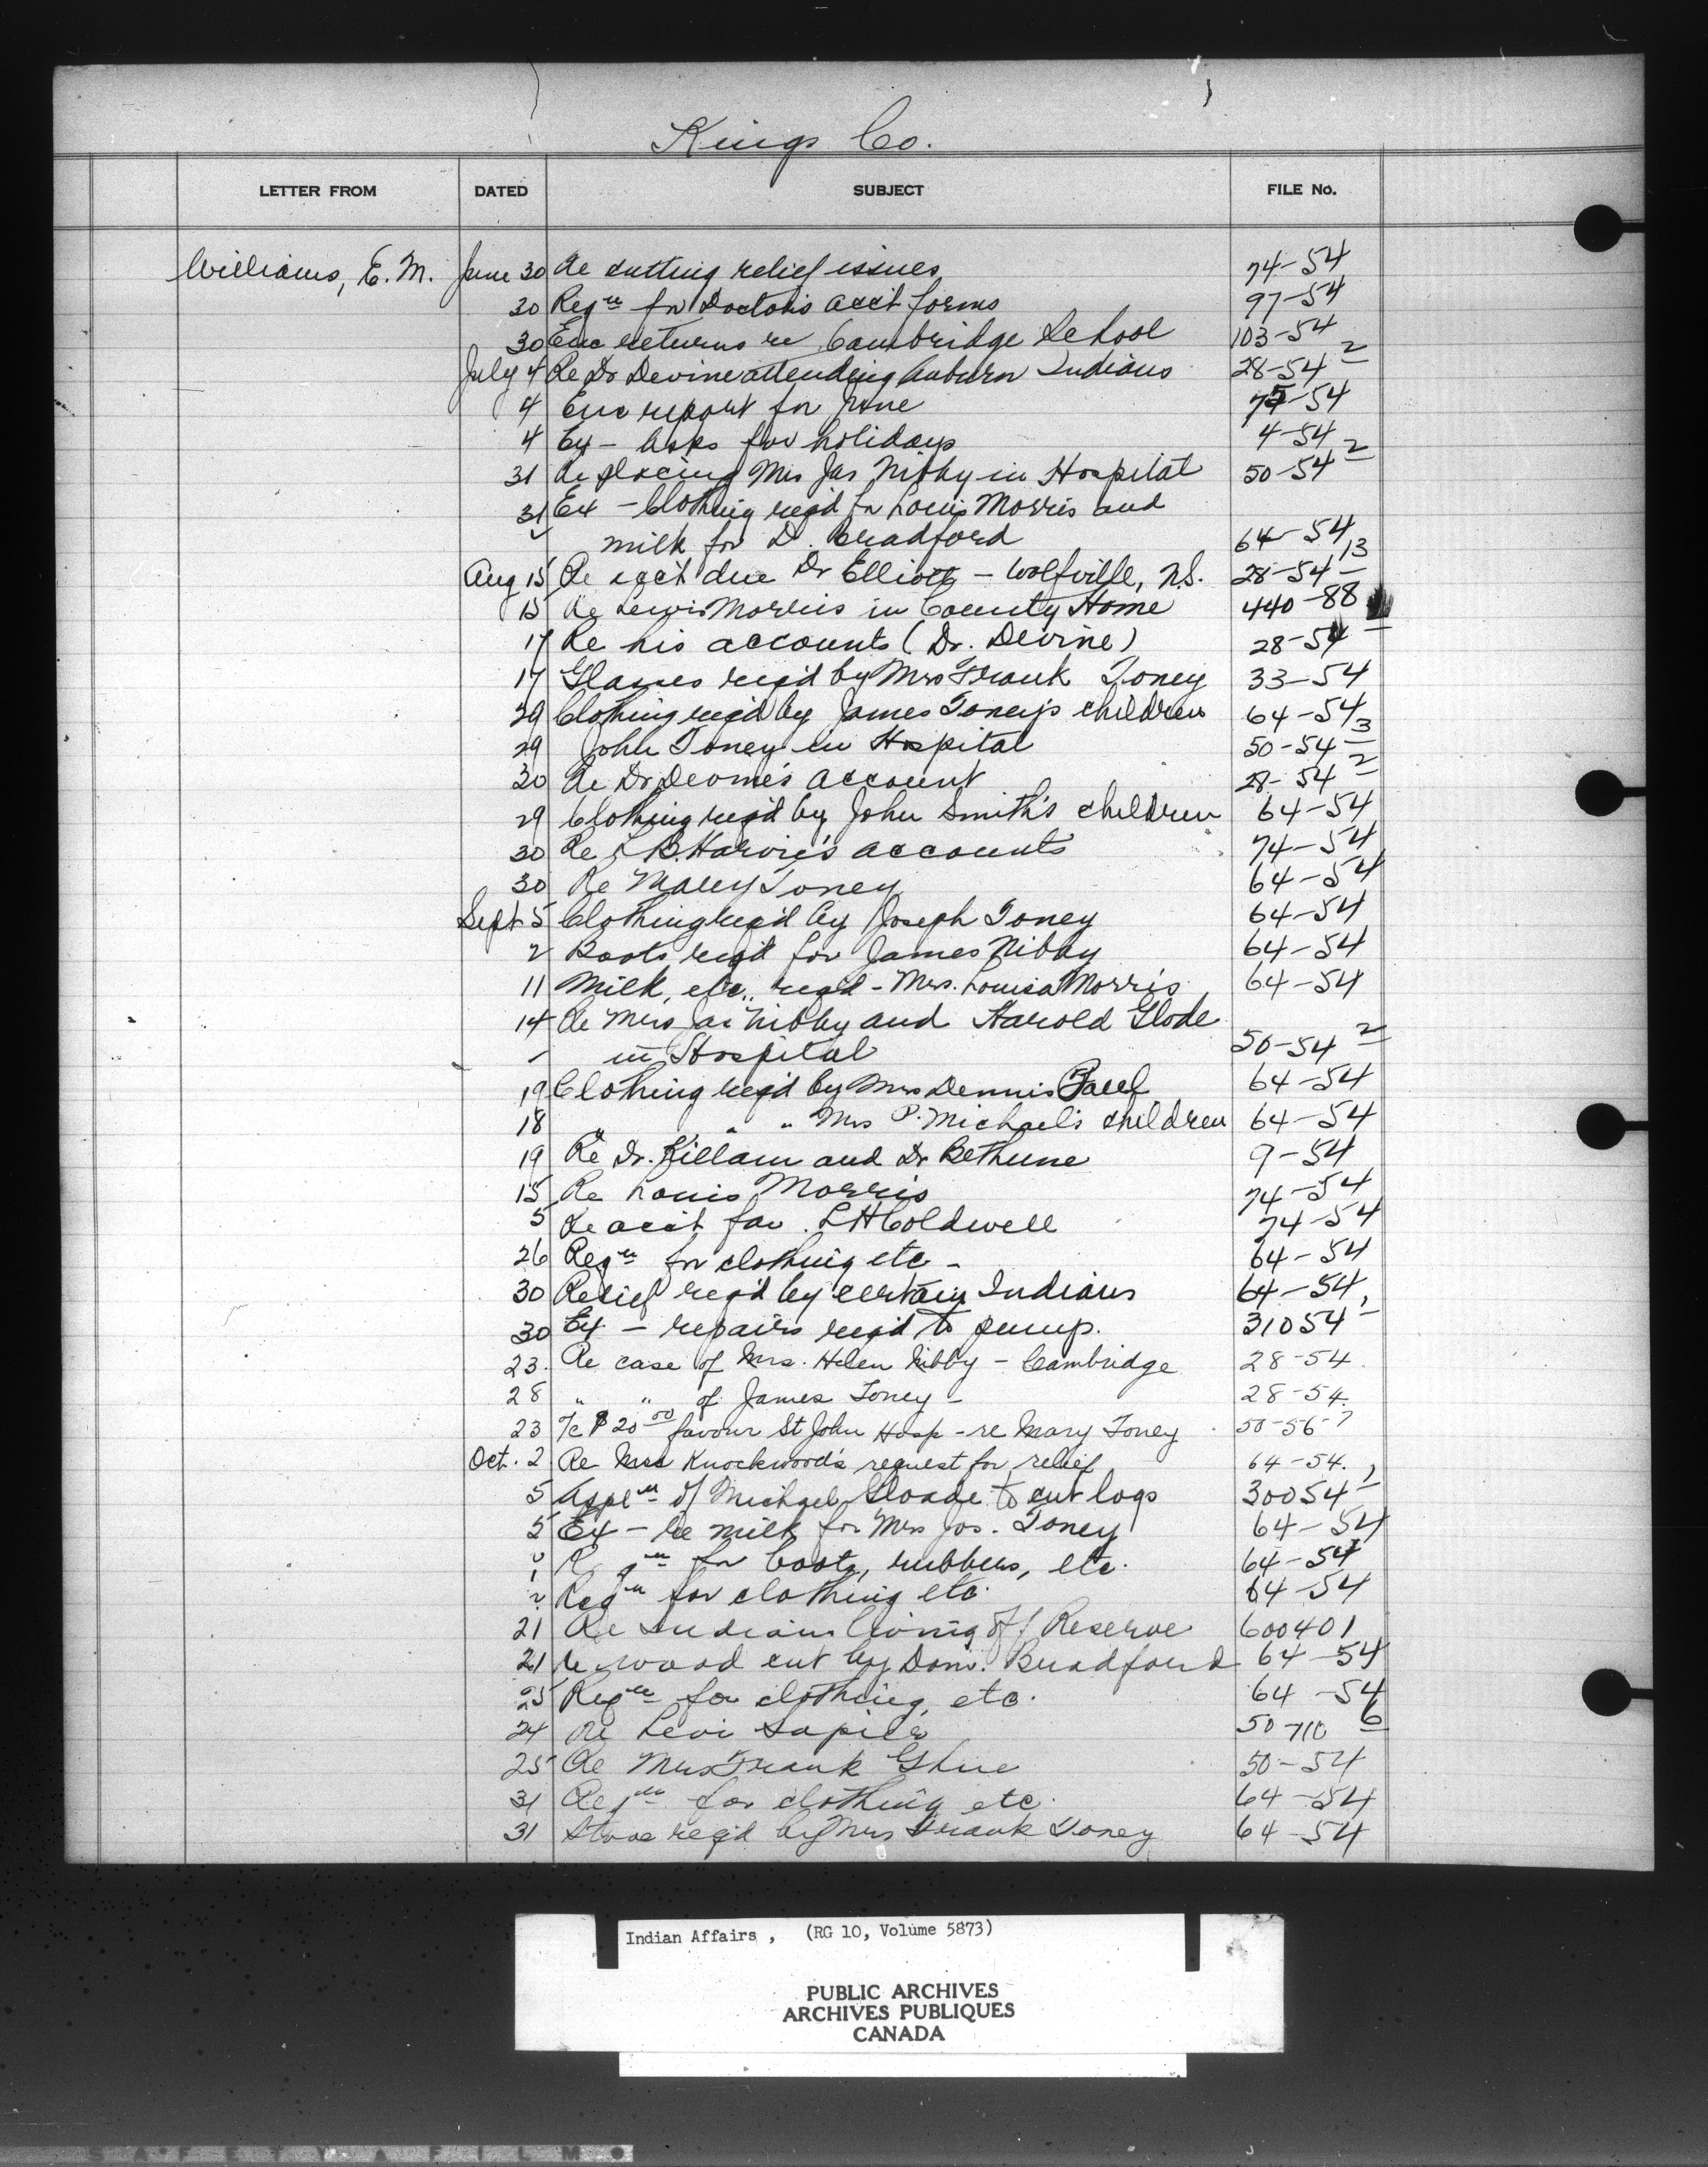 Kings Co.
LETTER FROM DATED SUBJECT FILE No.
Williams, E. M. June 30 Re cutting relief issues 74-54
30 Reqn for Doctor's acct forms 97-54
30 Enc returns re Cambridge School 103-54
July 4 Re Dr Devine attending Auburn Indians 28-54 2
4 Enc report for June 75-54
4 Ex - Asks for holidays 4-54
31 Re placing Mrs Jas Nibby in Hospital 50-54 2
31 Ex - Clothing req'd for Louis Morris and
milk for D. Bradford 64-54
Aug 15 Re acc't due Dr Elliott - Wolfville, N.S. 28-54 13
15 Re Lewis Morris in County Home 440-88
17 Re his accounts (Dr. Devine) 28-54
17 Glasses req'd by Mrs Frank Toney 33-54
29 Clothing req'd by James Toney's children 64-54
29 John Toney in Hospital 50-54 3
30 Re Dr Devine's account 28-54 2
29 Clothing req'd by John Smith's children 64-54
30 Re B. Harvie's accounts 74-54
30 Re Mary Toney 64-54
Sept 5 Clothing req'd by Joseph Toney 64-54
2 Boots req'd for James Nibby 64-54
11 Milk, etc., req'd - Mrs. Louisa Morris 64-54
14 Re Mrs Jas Nibby and Harold Glode
- in Hospital 50-54 2
19 Clothing req'd by Mrs Dennis 64-54
18 " " " Mrs P. Michael's children 64-54
19 Re Dr. Killam and Dr Bethune 9-54
15 Re Louis Morris 74-54
5 Re acc't fav. L H Coldwell 74-54
26 Reqn for clothing etc - 64-54
30 Relief req'd by certain Indians 64-54
30 Ex - repairs req'd to pump. 31054 1
23. Re case of Mrs. Helen Nibby - Cambridge 28-54.
28 " " of James Toney - 28-54.
23 T/c $20 00 favour St John Hosp - re Mary Toney 50-56-7
Oct. 2 Re Mrs Knockwood's request for relief 64-54.
5 Appln of Michael Gloade to cut logs 30054 1
5 Ex - Re milk for Mrs Jos. Toney 64-54
for boots, rubbers, etc. 64-54
Reqn for clothing etc. 64-54
21 Re Indians living off Reserve 600401
21 Re wood cut by Dom. Bradford 64-54
25 Reqn for clothing, etc. 64-54
24 Re Levi Sapier 50-710 6
25 Re Mrs Frank Glue 50-54
31 Reqn for clothing etc. 64-54
31 Stove req'd by Mrs Frank Toney 64-54
Indian Affairs, (RG 10, Volume 5873)
PUBLIC ARCHIVES
ARCHIVES PUBLIQUES
CANADA
SAFETY FILM